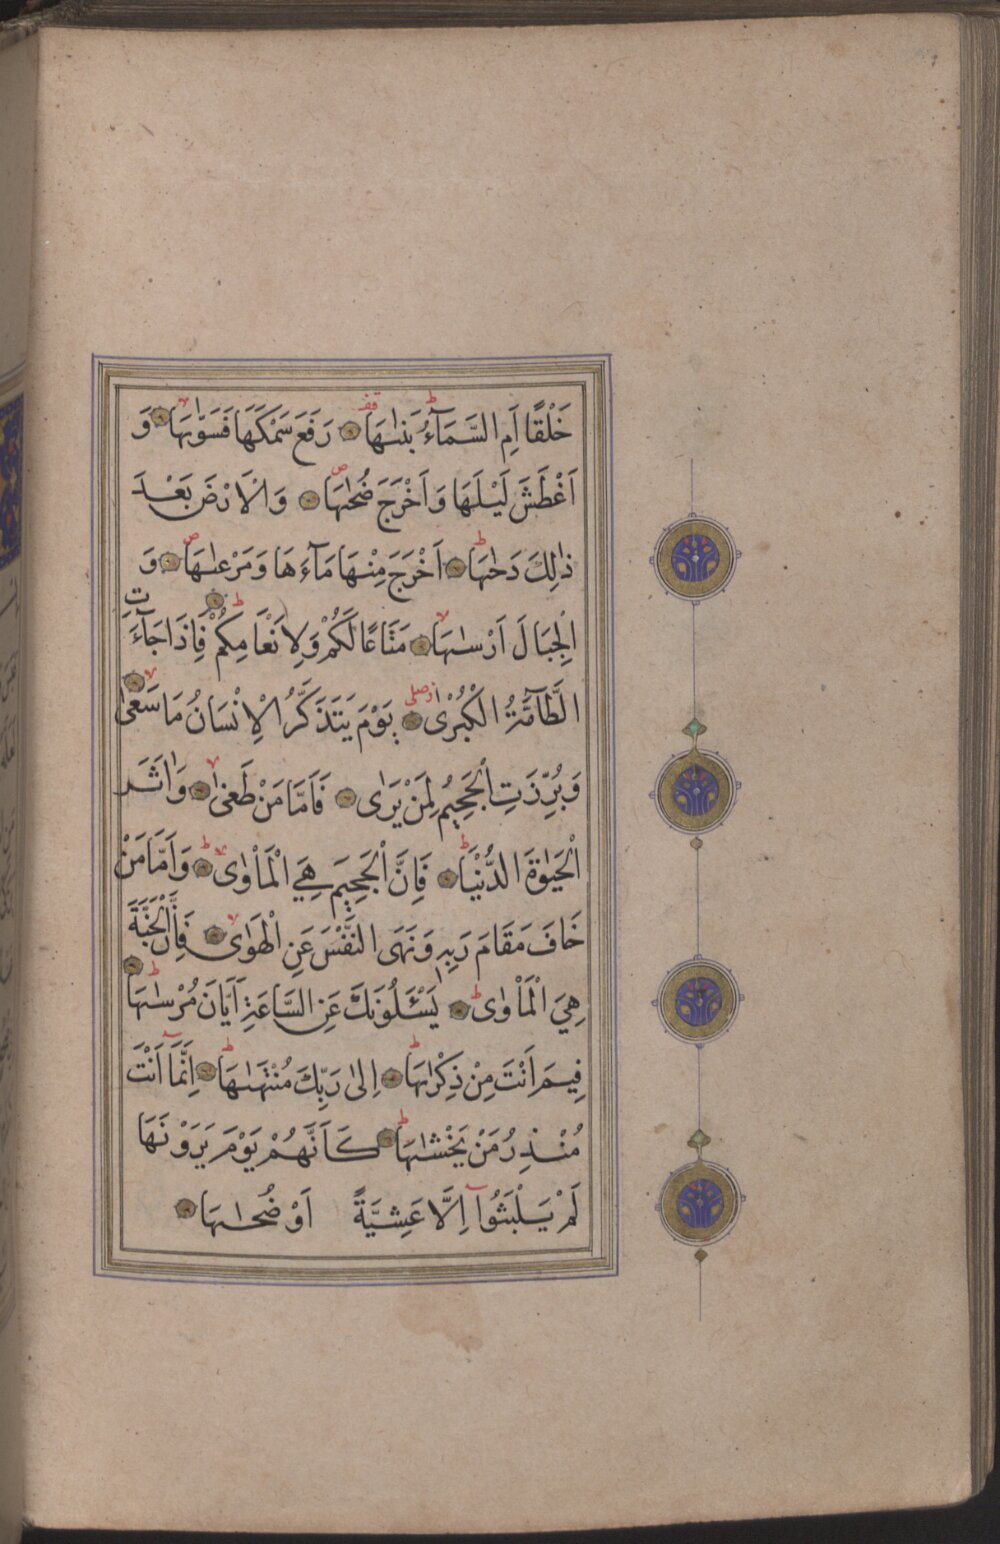 خَلْقًا اَمِ السَّمَآءُ بَنٰىهَا رَفَعَ سَمْكَهَا فَسَوّٰيهَا وَ
اَغْطَشَ لَيْلَهَا وَاَخْرَجَ ضُحٰىهَا وَالْاَرْضَ بَعْدَ
ذٰلِكَ دَحٰىهَا اَخْرَجَ مِنْهَا مَآءَهَا وَمَرْعٰىهَا وَ
الْجِبَالَ اَرْسٰىهَا مَتَاعًا لَكُمْ وَلِاَنْعَامِكُمْ فَاِذَا جَآءَتِ
الطَّآمَّةُ الْكُبْرٰى يَوْمَ يَتَذَكَّرُ الْاِنْسَانُ مَا سَعٰى
وَبُرِّزَتِ الْجَحِيمُ لِمَنْ يَرٰى فَاَمَّا مَنْ طَغٰى وَاٰثَرَ
الْحَيٰوةَ الدُّنْيَا فَاِنَّ الْجَحِيمَ هِيَ الْمَاْوٰى وَاَمَّا مَنْ
خَافَ مَقَامَ رَبِّهِ وَنَهَى النَّفْسَ عَنِ الْهَوٰى فَاِنَّ الْجَنَّةَ
هِيَ الْمَاْوٰى يَسْئَلُونَكَ عَنِ السَّاعَةِ اَيَّانَ مُرْسٰىهَا
فِيمَ اَنْتَ مِنْ ذِكْرٰىهَا اِلٰى رَبِّكَ مُنْتَهٰىهَا اِنَّمَآ اَنْتَ
مُنْذِرُ مَنْ يَخْشٰىهَا كَاَنَّهُمْ يَوْمَ يَرَوْنَهَا
لَمْ يَلْبَثُوآ اِلَّا عَشِيَّةً اَوْ ضُحٰىهَا